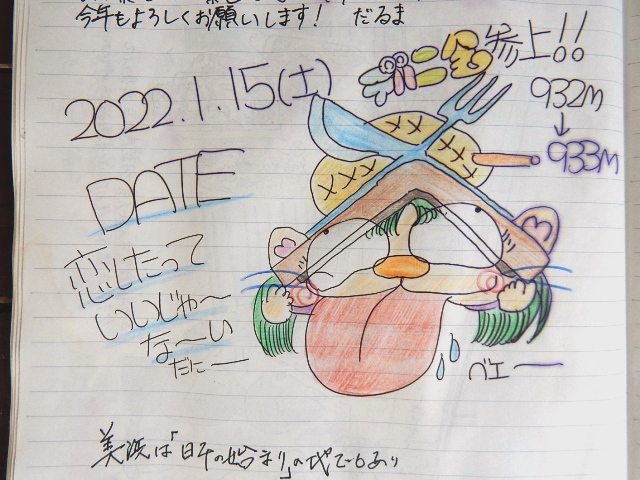 今年もよろしくお願いします! だるま
参上!!
2022.1.15(土)
932m
↓
933m
DATE
恋したって
いいじゃ〜
な〜い
だに一
ベエー
美浜は「日本の始まり」の地でもあり